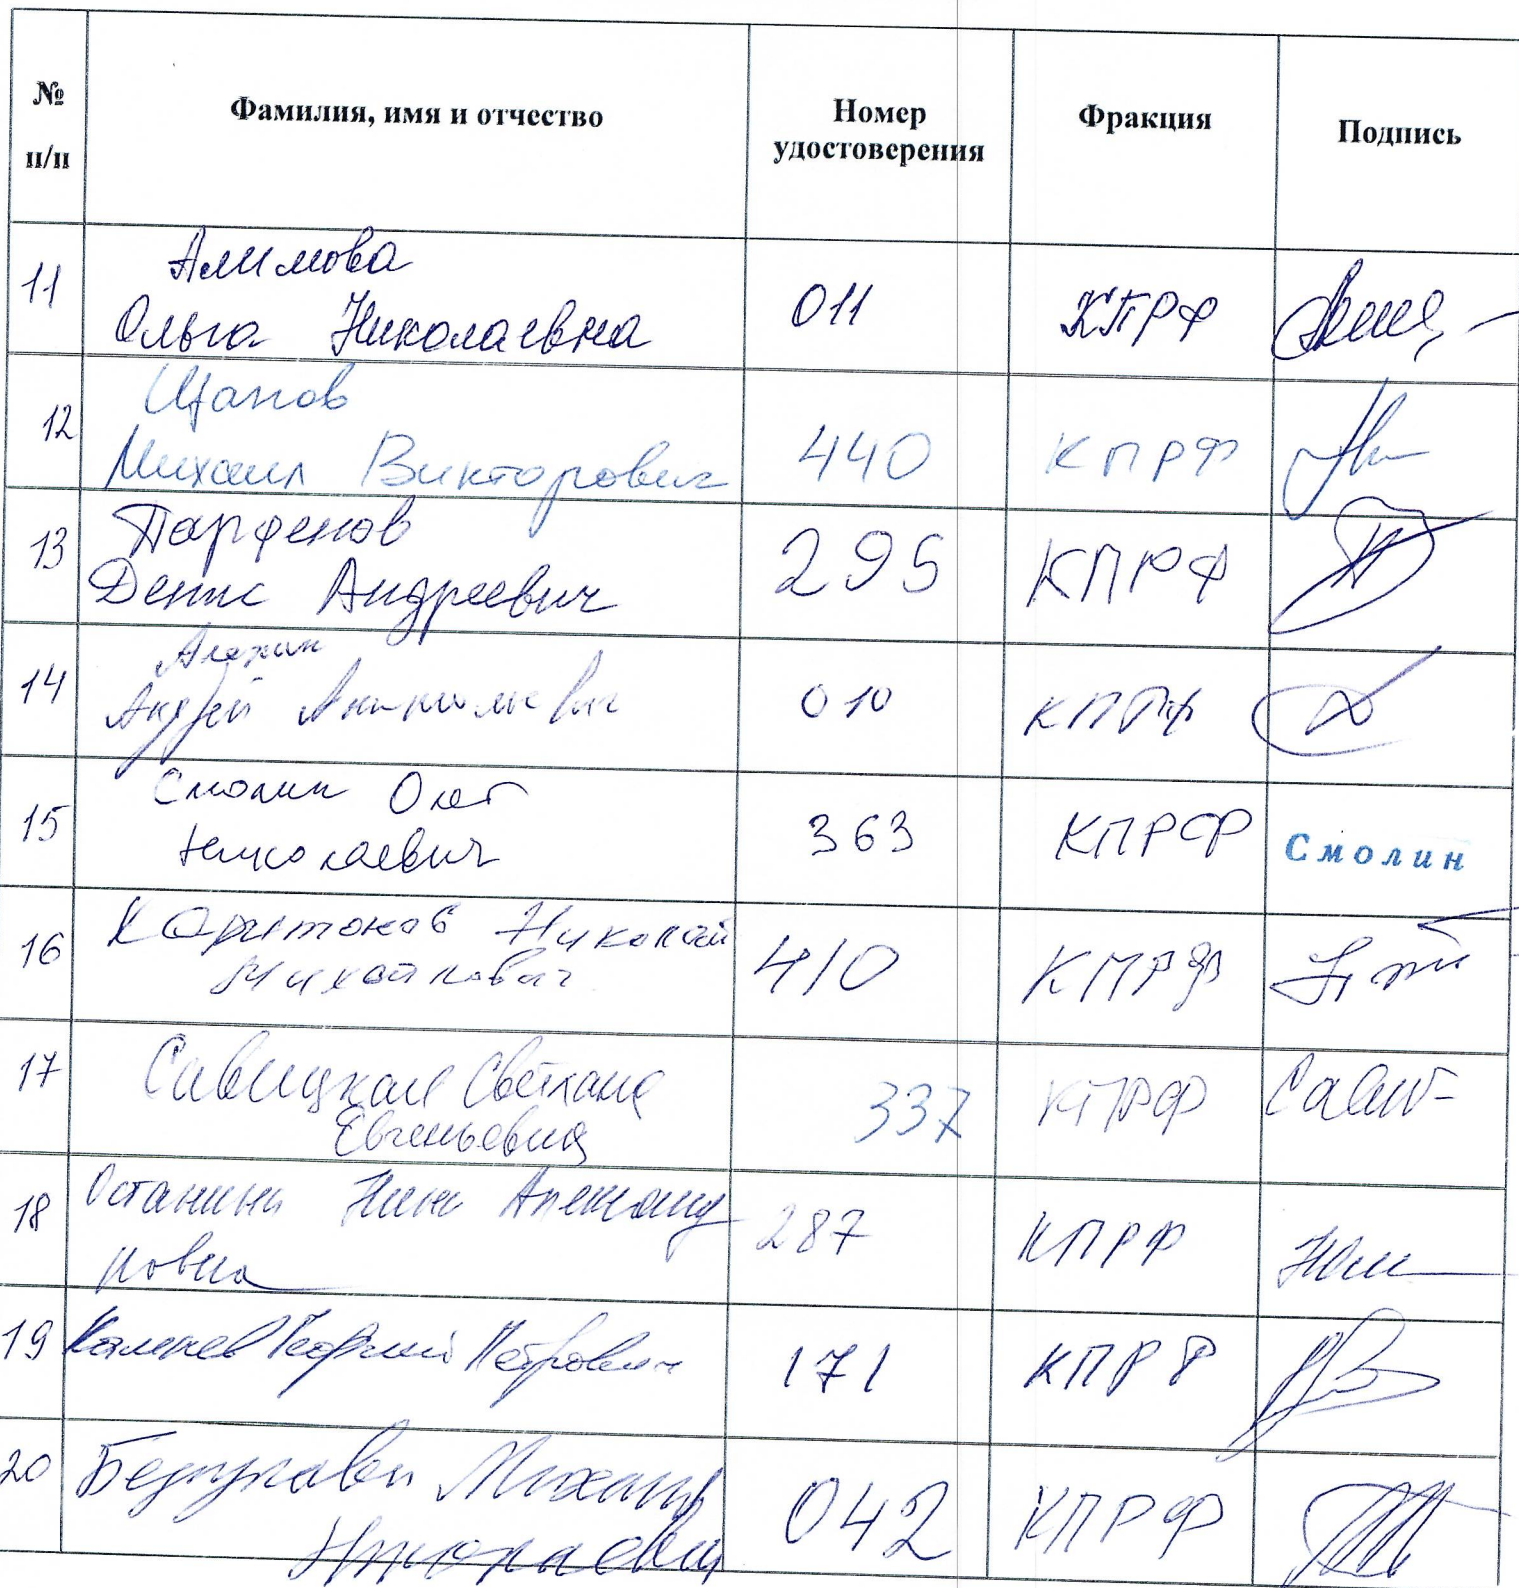 № п/п Фамилия, имя и отчество Номер удостоверения Фракция Подпись
Алимова
11 Ольга Николаевна 011 КПРФ
Щапов
12 Михаил Викторович 440 КПРФ
Парфенов
13 Денис Андреевич 295 КПРФ
Алехин
14 Андрей Анатольевич 010 КПРФ
Смолин Олег
15 Николаевич 363 КПРФ Смолин
Харитонов Николай
16 Михайлович 410 КПРФ
17 Савицкая Светлана
Евгеньевна 337 КПРФ
Останина Нина Александ
18 ровна 287 КПРФ
19 Камнев Георгий Петрович 171 КПРФ
20 Берулава Михаил
Николаевич 042 КПРФ